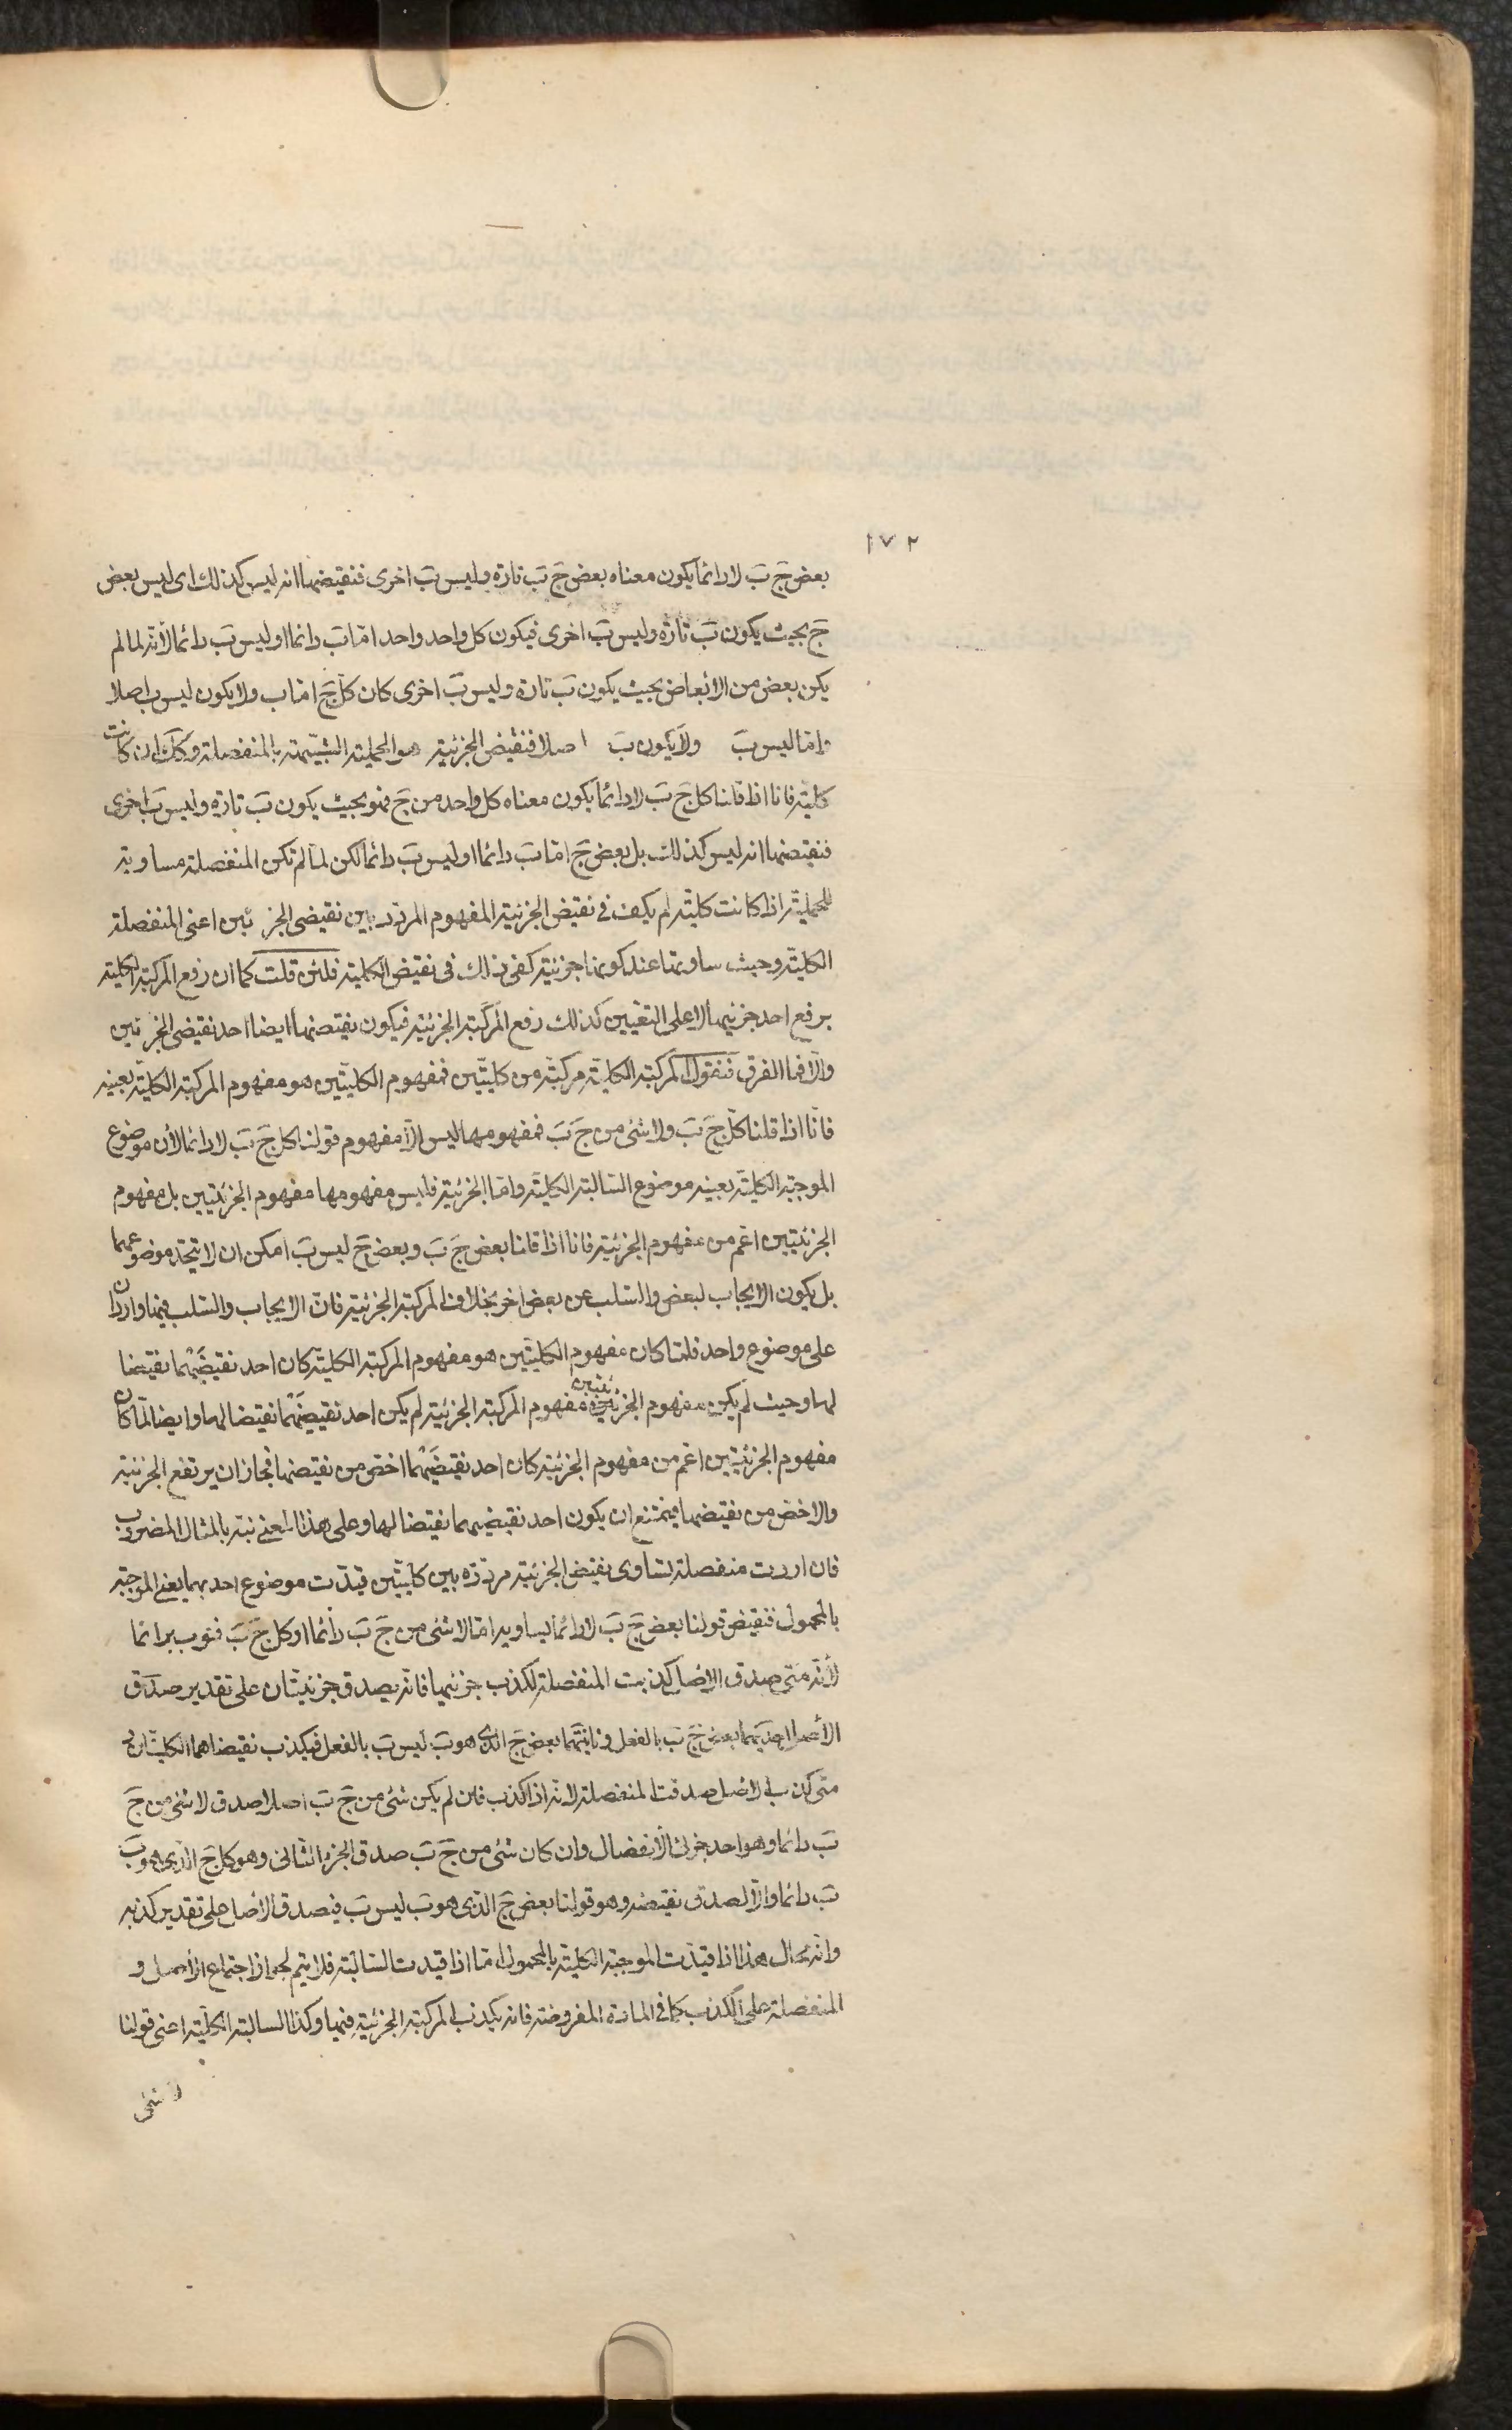 ١٧٢
بعض جَ بَ لا دائما يكون معناه بعض جَ بَ تارة وليس بَ اخرى فنقيضها انه ليس كذلك اى ليس بعض
جَ بحيث يكون بَ تارة وليس بَ اخرى فيكون كل واحد واحد امّا بَ دائما او ليس بَ دائما لأنّه لما لم
يكن بعض من الابعاض بحيث يكون بَ تارة وليس بَ اخرى كان كلّ جَ امّا ب ولا يكون ليس ب اصلا
وامّا ليس بَ ولا يكون بَ اصلا فنقيض الجزئية هو الحملية الشبيهة بالمنفصلة وكك ان كانت
كلية فانا اذا قلنا كل جَ بَ لا دائما يكون معناه كل واحد من جَ فهو بحيث يكون بَ تارة وليس بَ اخرى
فنقيضها انه ليس كذلك بل بعض جَ امّا بَ دائما او ليس بَ دائما لكن لما لم تكن المنفصلة مساوية
للحملية اذا كانت كليّة لم يكف فى نقيض الجزئية المفهوم المردد بين نقيضى الجزئين اعنى المنفصلة
الكليّة وحيث ساوتها عند كونها جزئية كفى ذلك فى نقيض الكلية فلئن قلت كما ان رفع المركبة الكلية
برفع احد جزئيها لا على التعيين كذلك رفع المركبة الجزئية فيكون نقيضها ايضا احد نقيضى الجزئين
والّا فما الفرق فنقول المركبة الكلية مركبة من كليّتين فمفهوم الكليتين هو مفهوم المركبة الكليّة بعينه
فانّا اذا قلنا كلّ جَ بَ ولا شئ من جَ بَ فمفهومها ليس الّا مفهوم قولنا كل جَ بَ لا دائما لأن موضوع
الموجبة الكلية بعينه موضوع السّالبة الكليّة وامّا الجزئية فليس مفهومها مفهوم الجزئيتين بل مفهوم
الجزئيتين اعم من مفهوم الجزئية فانا اذا قلنا بعض جَ بَ وبعض جَ ليس بَ امكن ان لا يتحد موضوعهما
بل يكون الايجاب لبعض والسّلب عن بعض اخر بخلاف المركبة الجزئية فانّ الايجاب والسّلب فيها واردان
على موضوع واحد فلمّا كان مفهوم الكليّتين هو مفهوم المركبة الكليّة كان احد نقيضَيهما نقيضا
لها وحيث لم يكن مفهوم الجزئيتين مفهوم المركبة الجزئية لم يكن احد نقيضَيهما نقيضا لها وايضا لمّا كان
مفهوم الجزئيتين اعم من مفهوم الجزئية كان احد نقيضَيهما اخصّ من نقيضها فجاز ان يرتفع الجزئية
والاخصّ من نقيضها فيمتنع ان يكون احد نقيضيهما نقيضا لها وعلى هذا المعنى نبّه بالمثال المضروب
فان اردت منفصلة تساوى نقيض الجزئية مرددة بين كليّتين قيدّت موضوع احديهما يعنى الموجبة
بالمحمول فنقيض قولنا بعض جَ بَ لا دائما يساويه امّا لا شئ من جَ بَ دائما او كل جَ بَ فهو ب دائما
لأنّه متى صدق الاصل كذبت المنفصلة لكذب جزئيها فانّه يصدق جزئيّتان على تقدير صدق
الأصل احديهما بعض جَ بَ بالفعل وثانيتهما بعض جَ الذى هو بَ ليس بَ بالفعل فيكذب نقيضاهما الكليّتان و
متى كذب الاصل صدقت المنفصلة لانّه اذا كذب فان لم يكن شئ من جَ بَ اصلا صدق لا شئ من جَ
بَ دائما وهو احد جزئى الانفصال وان كان شئ من جَ بَ صدق الجزء الثانى وهو كل جَ الذى هو بَ
بَ دائما والّا لصدق نقيضه وهو قولنا بعض جَ الذى هو بَ ليس بَ فيصدق الاصل على تقدير كذبه
وانّه محال هذا اذا قيدّت الموجبة الكليّة بالمحمول امّا اذا قيدت السّالبة فلا يتم لجواز اجتماع الأصل و
المنفصلة على الكذب كما فى المادة المفروضة فانه يكذب المركبة الجزئية فيها وكذا السالبة الكليّة اعنى قولنا
لا شئ